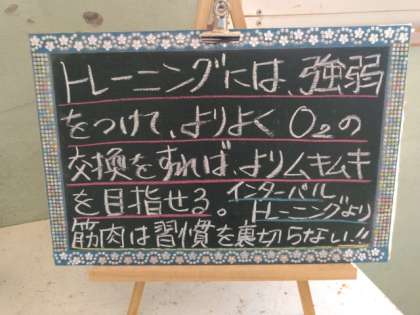 トレーニングには、強弱
をつけて、よりよく O₂の
交換をすれば、よりムキムキ
を目指せる。インターバル
トレーニングより
筋肉は習慣を裏切らない!!